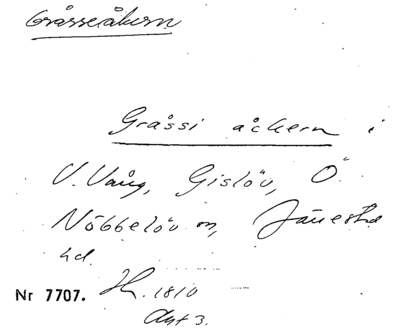 Gråsseåkern
Gråssi åckern i
V. Vång, Gislöv, Ö.
Nöbbelöv sn, Järrestad
hd.
Nr 7707. H. 1810
Akt 3.